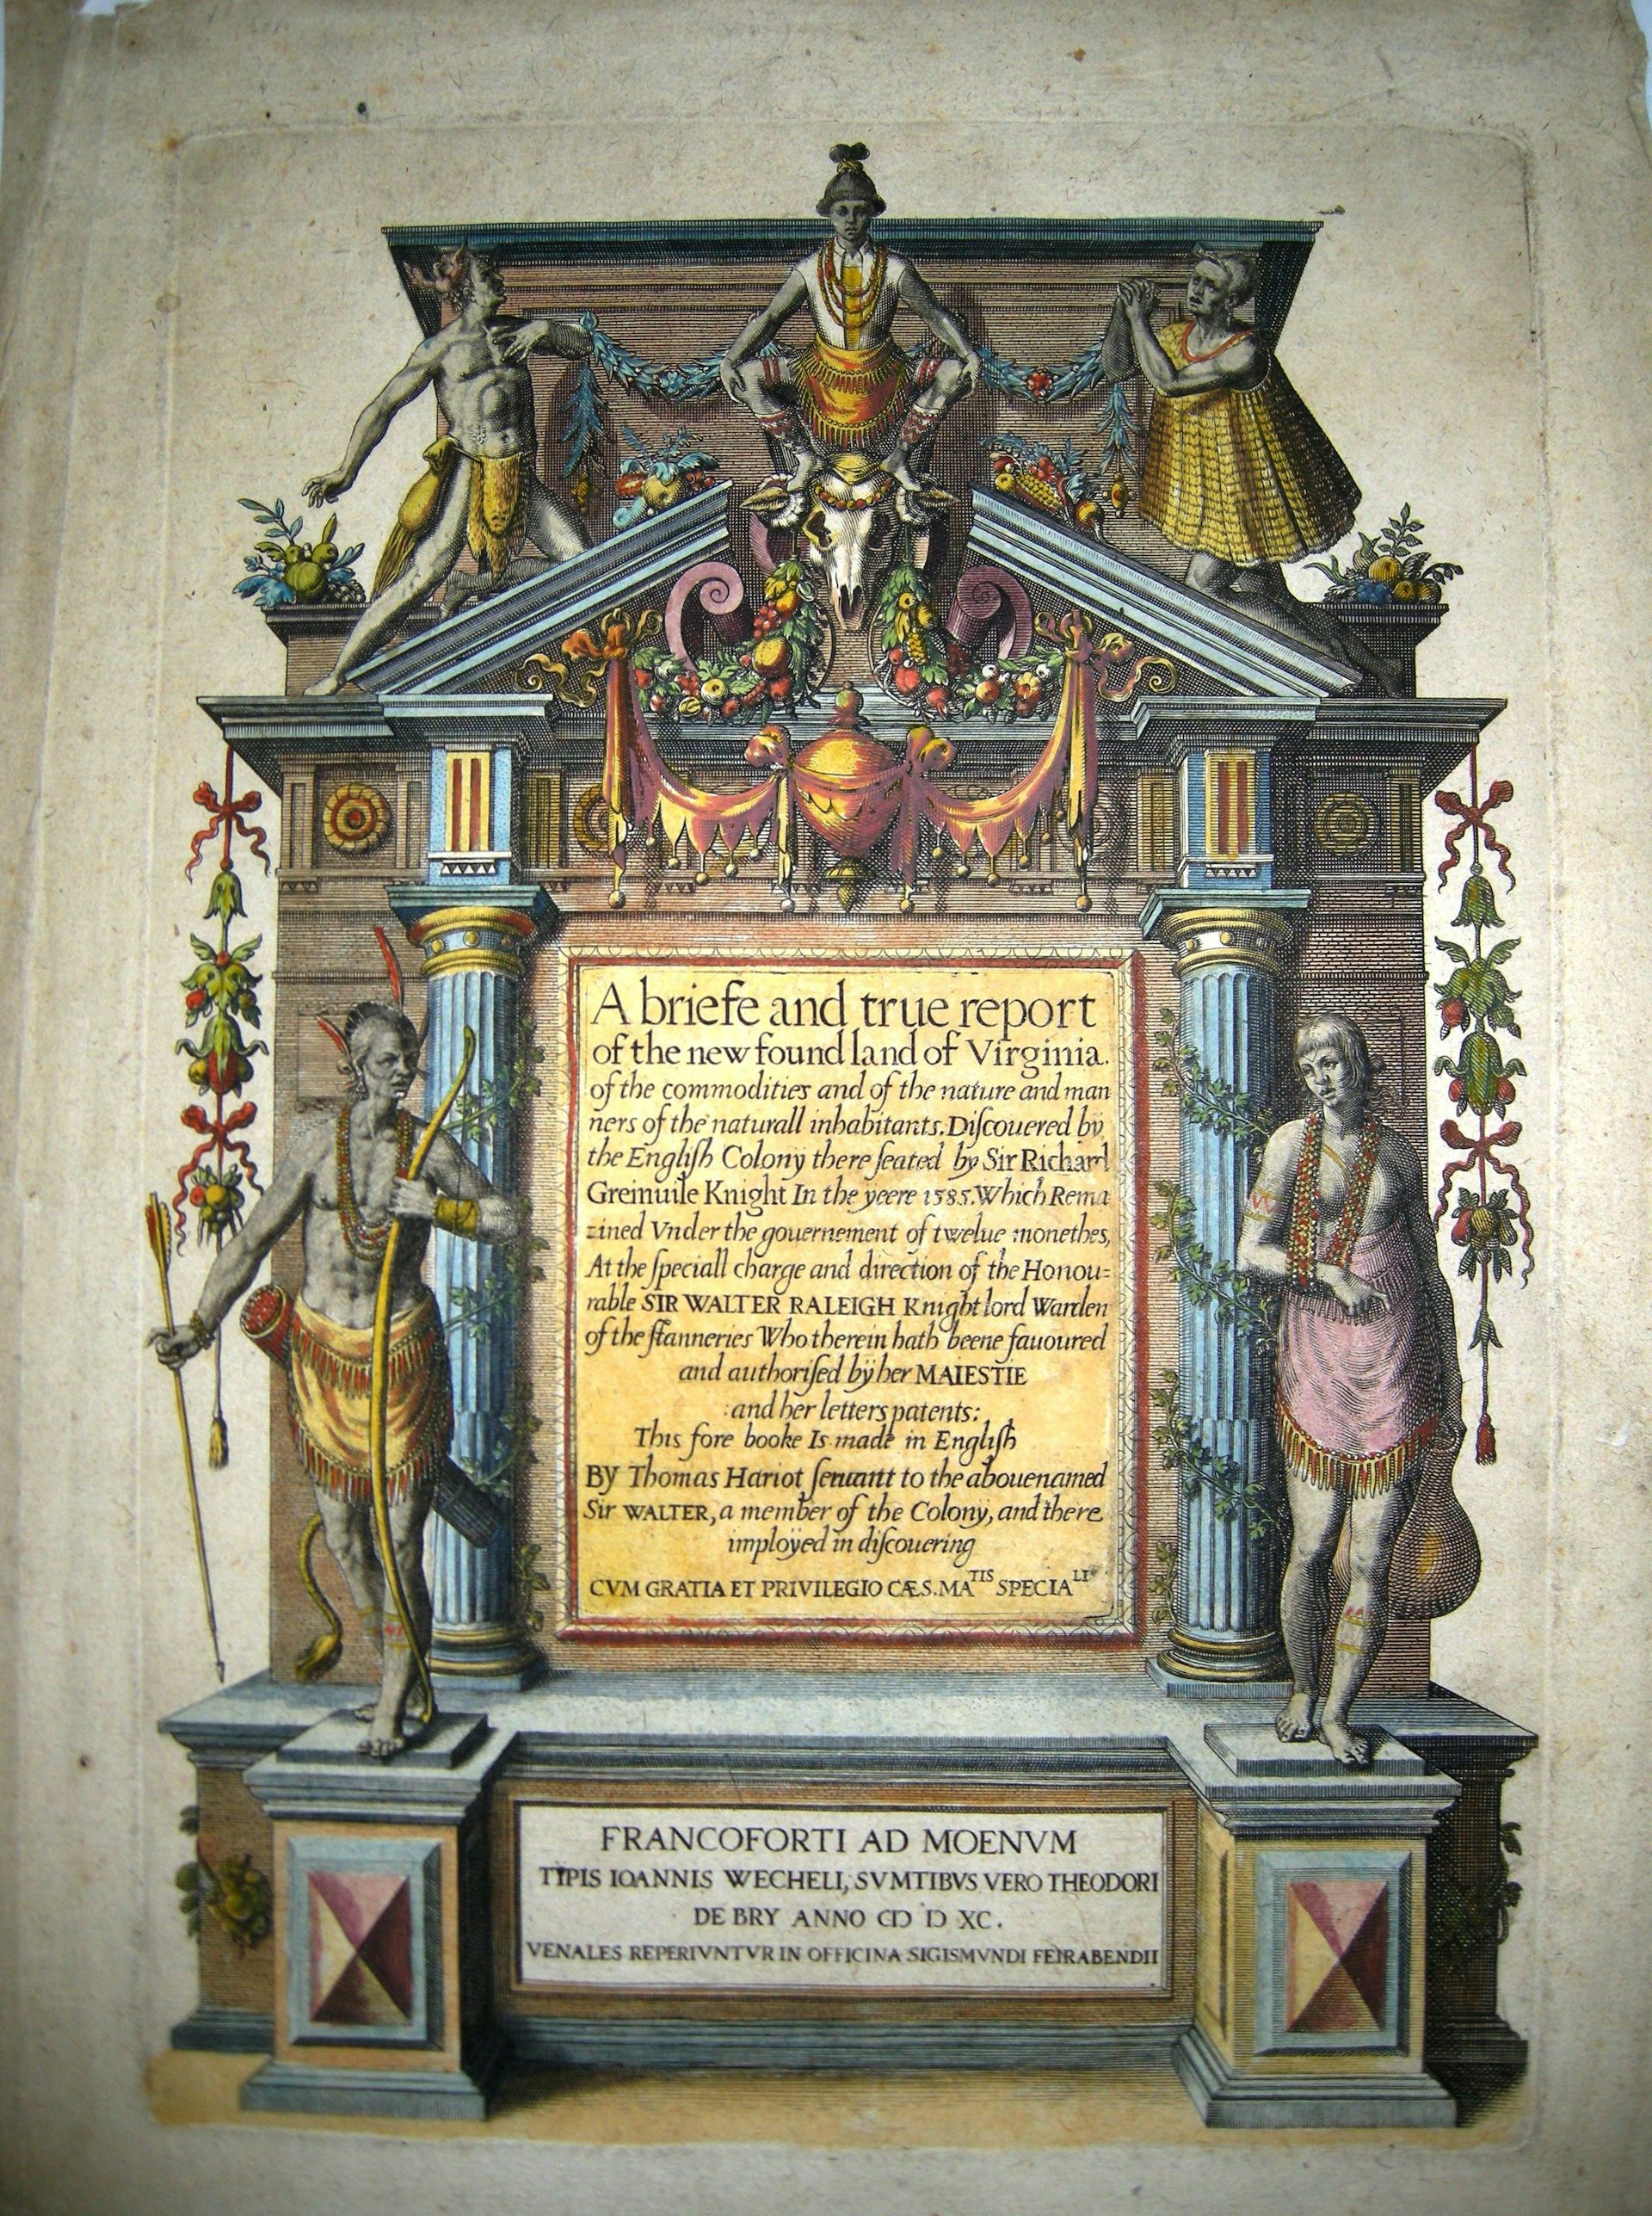 A briefe and true report
of the new found land of Virginia.
of the commodities and of the nature and man
ners of the naturall inhabitants. Diſcouered bÿ
the Engliſh Colonÿ there ſeated by Sir Richard
Greinuile Knight In the ÿeere 1585. Which Rema
ined Vnder the gouernement of twelue monethes,
At the ſpeciall charge and direction of the Honou=
rable SIR WALTER RALEIGH Knight lord Warden
of the ſtanneries Who therein hath beene fauoured
and authoriſed bÿ her MAIESTIE
:and her letters patents:
This fore booke Is made in Engliſh
By Thomas Hariot ſeruant to the abouenamed
Sir WALTER, a member of the Colonÿ, and there
imploÿed in diſcouering
CVM GRATIA ET PRIVILEGIO CÆS. MA^TIS SPECIA^LI
FRANCOFORTI AD MOENVM
TYPIS IOANNIS WECHELI, SVMTIBVS VERO THEODORI
DE BRY ANNO CIƆ IƆ XC.
VENALES REPERIVNTVR IN OFFICINA SIGISMVNDI FEIRABENDII